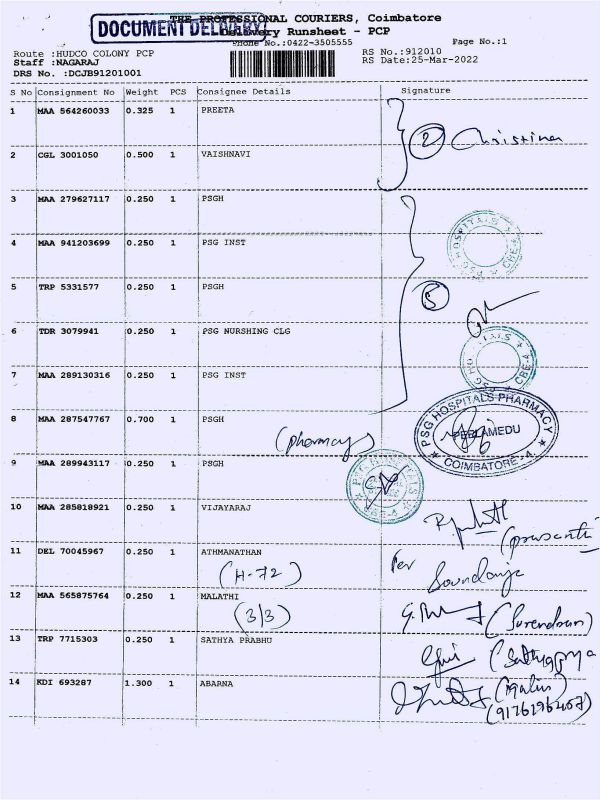 THE PROFESSIONAL COURIERS, Coimbatore
DOCUMENT DELIVERY
Delivery Runsheet - PCP
Phone No.:0422-3505555
Page No.:1
Route :HUDCO COLONY PCP
RS No.:912010
Staff :NAGARAJ
RS Date:25-Mar-2022
DRS No. :DCJB91201001
S No Consignment No Weight PCS Consignee Details Signature
1 MAA 564260033 0.325 1 PREETA
(2) Christina
2 CGL 3001050 0.500 1 VAISHNAVI
3 MAA 279627117 0.250 1 PSGH
4 MAA 941203699 0.250 1 PSG INST
5 TRP 5331577 0.250 1 PSGH
(5)
6 TDR 3079941 0.250 1 PSG NURSHING CLG
7 MAA 289130316 0.250 1 PSG INST
PSG HOSPITALS PHARMACY
PEELAMEDU
COIMBATORE-4.
8 MAA 287547767 0.700 1 PSGH
(pharmacy)
9 MAA 289943117 0.250 1 PSGH
10 MAA 285818921 0.250 1 VIJAYARAJ
11 DEL 70045967 0.250 1 ATHMANATHAN
(H-72)
12 MAA 565875764 0.250 1 MALATHI
(3/3)
(Surendran)
13 TRP 7715303 0.250 1 SATHYA PRABHU
14 KDI 693287 1.300 1 ABARNA